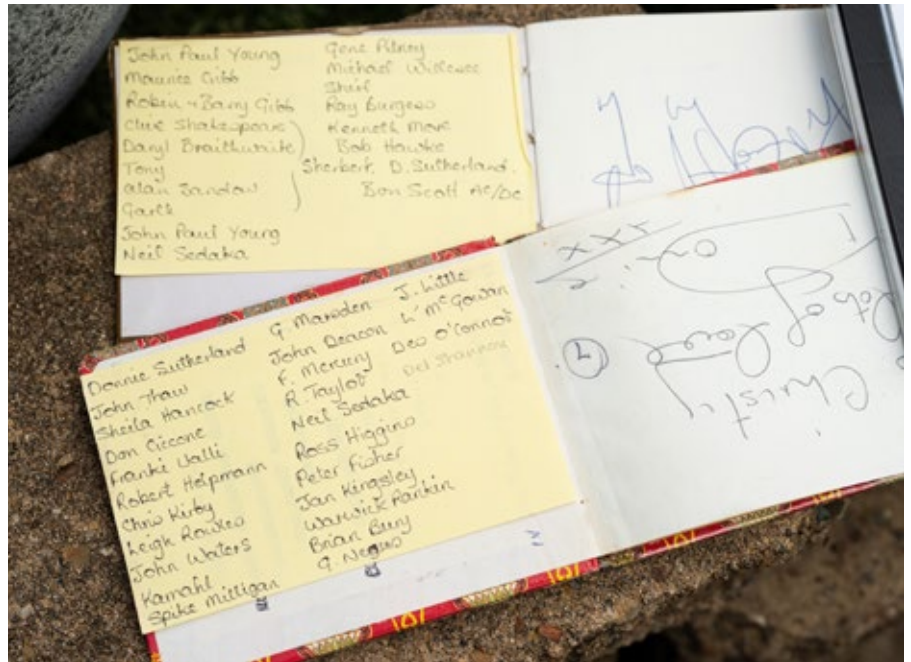 John Paul Young
Maurice Gibb
Robin + Barry Gibb
Clive Shakespeare
Daryl Braithwaite
Tony
Alan Sandow
Garth
John Paul Young
Neil Sedaka
Gene Pitney
Michael Willesee
Sherl
Ray Burgess
Kenneth More
Bob Hawke
Sherbert. D. Sutherland.
Bon Scott AC/DC
Donnie Sutherland
John Thaw
Sheila Hancock
Don Ciccone
Franki Valli
Robert Helpmann
Chris Kirby
Leigh Rawles
John Waters
Kamahl
Spike Milligan
G. Marsden
John Deacon
F. Mercury
R Taylor
Neil Sedaka
Ross Higgins
Peter Fisher
Jan Kingsley
Warwick Rankin
Brian Bury
G. Negus
J. Little
L' McGowan
Des O'Connor
Del Shannon
Christy
Lots of Love
xxx